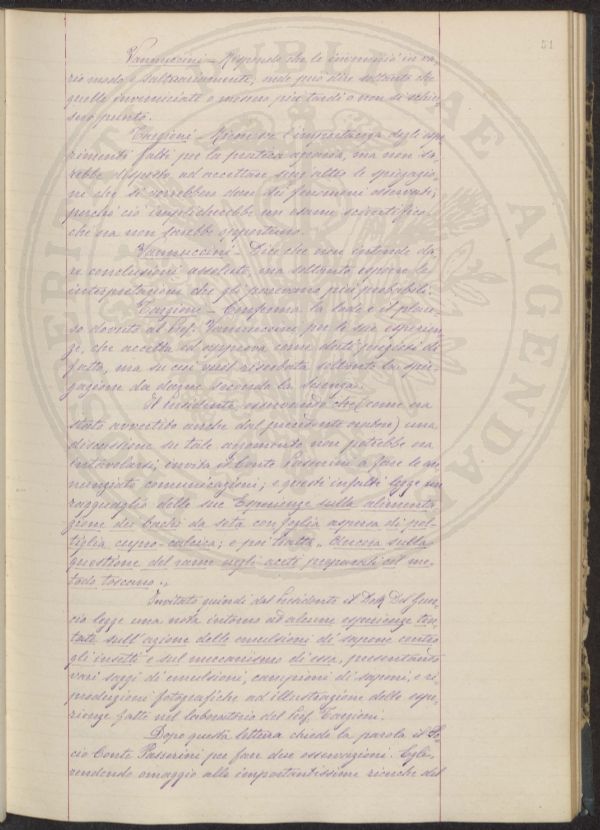 51
Vannuccini - Risponde che le inverniciò in va-
rio modo e saltuariamente, onde può dire soltanto che
quelle inverniciate o misero più tardi o non si schiu-
sero punto.
Targioni - Riconosce l'importanza degli espe-
rimenti fatti per la pratica agraria, ma non sa-
rebbe disposto ad accettare senz'altro le spiegazio-
ni che si vorrebbero dare dei fenomeni osservati;
perchè ciò implicherebbe un esame scientifico
che ora non sarebbe opportuno.
Vannuccini - Dice che non intende da-
re conclusioni assolute, ma soltanto esporre le
interpretazioni che gli parevano più probabili.
Targioni - Conferma la lode e il plau-
so dovuto al Prof. Vannuccini per le sue esperien-
ze, che accetta ed approva come dati preziosi di
fatto, ma su cui vuol riserbata soltanto la spie-
gazione da darne secondo la scienza.
Il Presidente, osservando che (come era
stato avvertito anche dal precedente oratore) una
discussione su tale argomento non potrebbe ora
intavolarsi, invita il Conte Passerini a fare le an-
nunziate comunicazioni; e questi infatti legge un
ragguaglio delle sue Esperienze sulla alimenta-
zione dei bachi da seta con foglia aspersa di pol-
tiglia cupro-calcica; e poi tratta "Ancora sulla
questione del rame negli aceti preparati col me-
todo toscano".
Invitato quindi dal Presidente il Dott. Del Guer-
cio legge una nota intorno ad alcune esperienze ten-
tate sull'azione delle emulsioni di sapone contro
gli insetti e sul meccanismo di essa, presentando
vari saggi di emulsioni, campioni di saponi, e ri-
produzioni fotografiche ad illustrazione delle espe-
rienze fatte nel laboratorio del Prof. Targioni.
Dopo questa lettura chiede la parola il So-
cio Conte Passerini per fare due osservazioni. Egli,
rendendo omaggio alle importantissime ricerche del